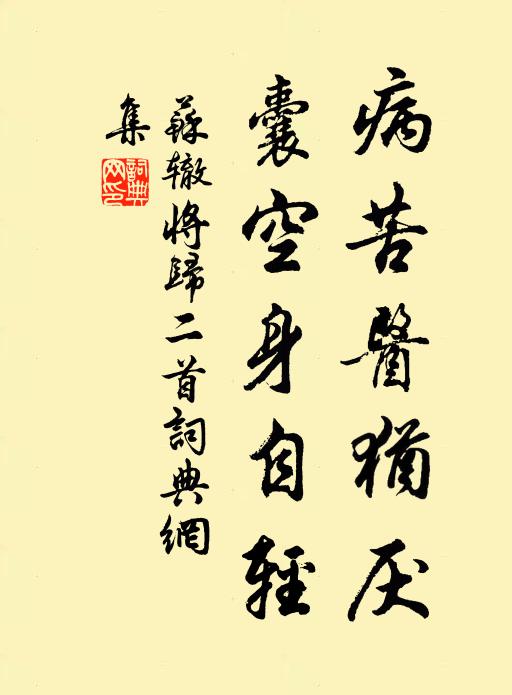 病苦醫猶厌
囊空身自輕
蘇辙將歸二首詞典網
集
詞典网印